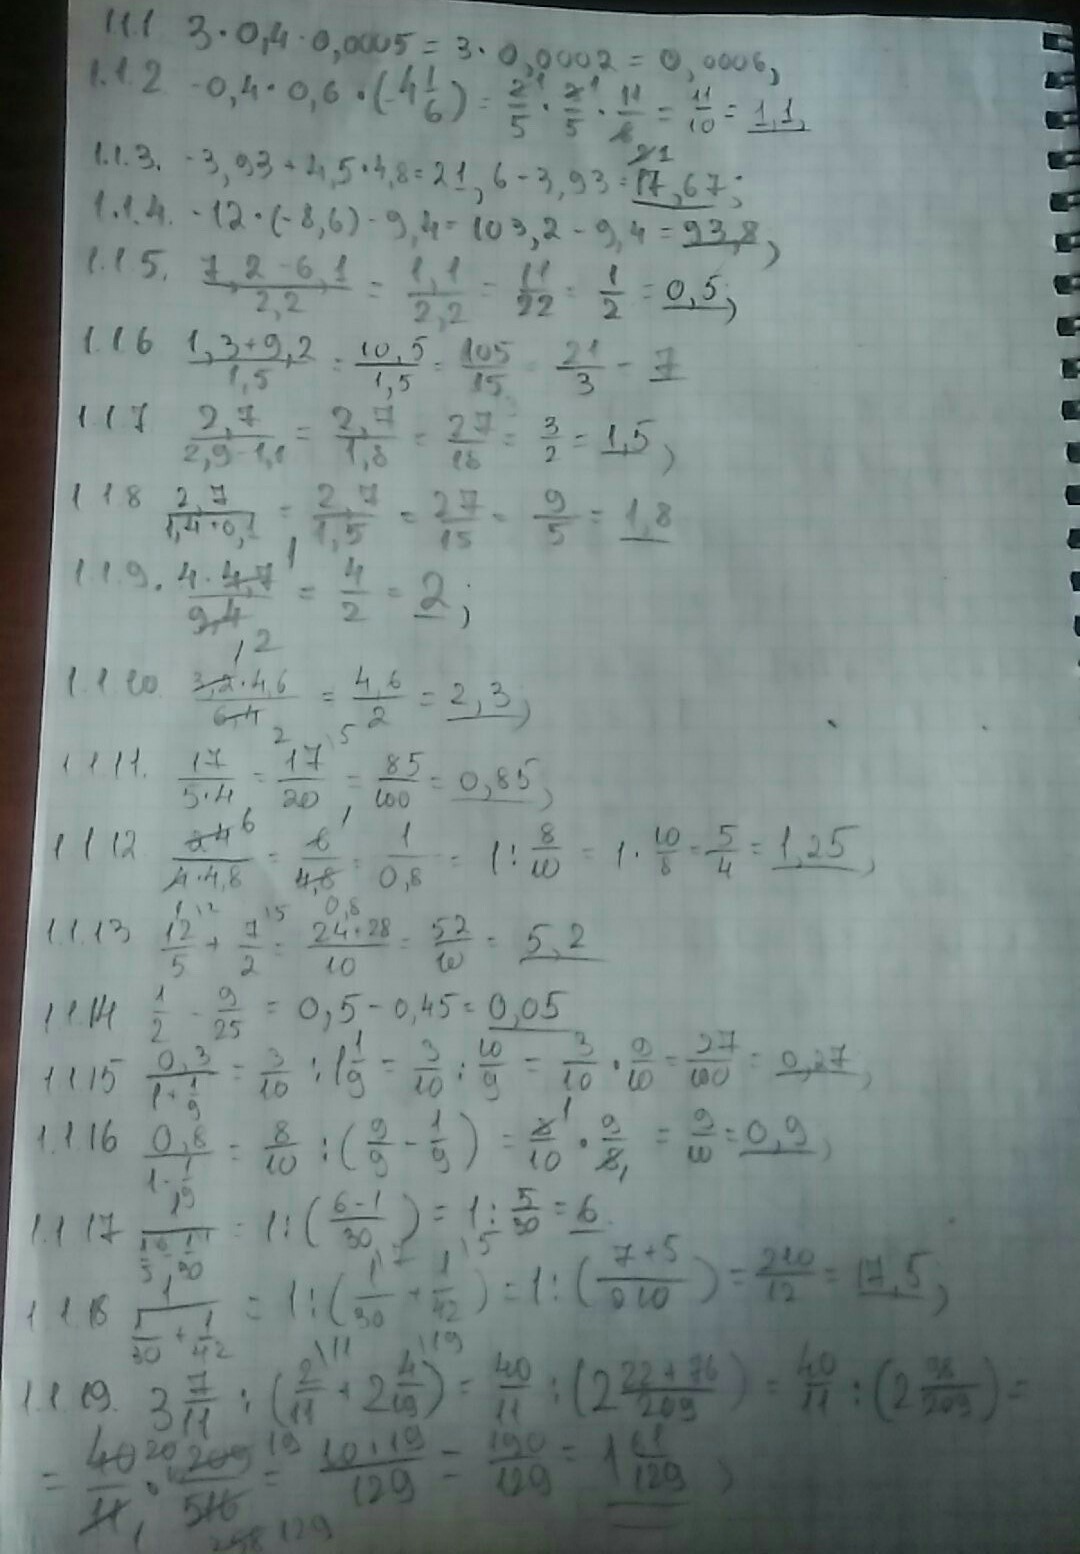 1.1.1 3·0,4·0,0005=3·0,0002=0,0006,
1.1.2 -0,4·0,6·(-4 1/6)=2/5·2/5·11/6=11/10=1,1,
1.1.3. -3,93+4,5·4,8=21,6-3,93=17,67;
1.1.4. -12·(-8,6)-9,4=103,2-9,4=93,8,
1.1.5. 7,2-6,1/2,2=1,1/2,2=11/22=1/2=0,5;
1.1.6 1,3+9,2/1,5=10,5/1,5=105/15=21/3=7
1.1.7 2,7/2,9-1,1=2,7/1,8=27/18=3/2=1,5,
1.1.8 2,7/1,4+0,1=2,7/1,5=27/15=9/5=1,8
1.1.9. 4·4,7/9,4=4/2=2;
1.1.10 3,2·4,6/6,4=4,6/2=2,3,
1.1.11. 17/5·4=17/20=85/100=0,85,
1.1.12 24/4·4,8=6/4,8=1/0,8=1:8/10=1·10/8=5/4=1,25,
1.1.13 12/5+7/2=24+28/10=52/10=5,2
1.1.14 1/2-9/25=0,5-0,45=0,05
1.1.15 0,3/1+1/9=3/10:1 1/9=3/10:10/9=3/10·9/10=27/100=0,27,
1.1.16 0,8/1-1/9=8/10:(9/9-1/9)=8/10·9/8=9/10=0,9,
1.1.17 1/1/5-1/30=1:(6-1/30)=1:5/30=6
1.1.18 1/1/30+1/42=1:(1/30+1/42)=1:(7+5/210)=210/12=17,5,
1.1.19. 3 7/11:(2/11+2 4/19)=40/11:(2 22+76/209)=40/11:(2 98/209)=
=40/11·209/516=10·19/129=190/129=1 61/129,